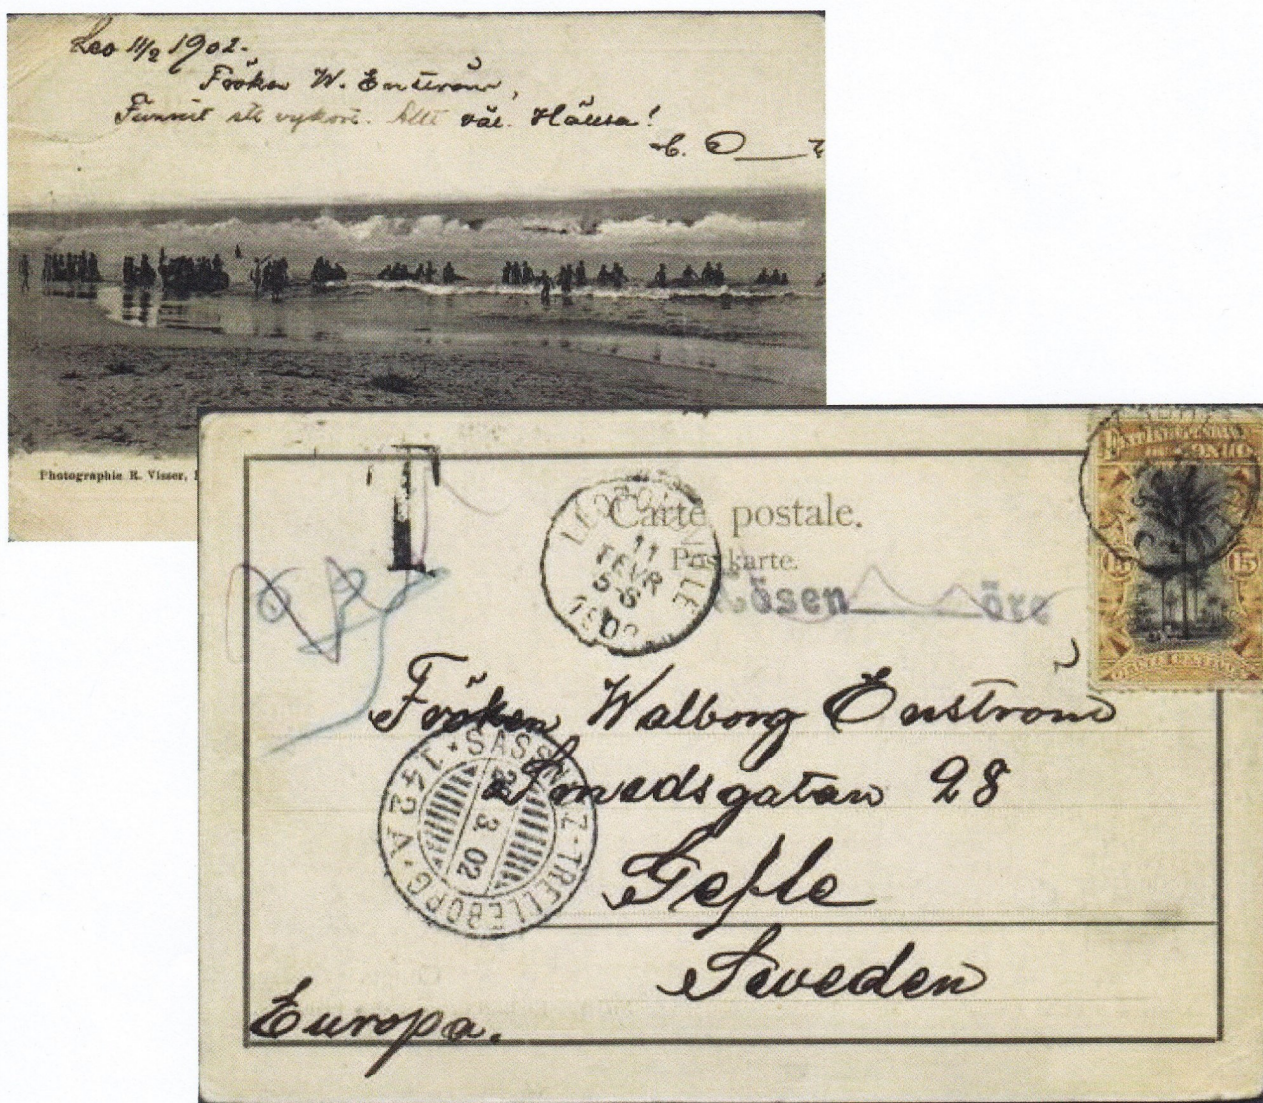 Leo 11/2 1902.
Fröken W. Enström,
Funnit ett vykort. Allt väl. Hälsa!
C.
Photographie R. Visser,
T
Carte postale.
Postkarte.
LEOPOLDVILLE
11
FEVR
5-6
1902
Lösen öre
ETAT INDÉPENDANT
DU CONGO
15 15
QUINZE CENTIMES
Fröken Walborg Enström
Smedsgatan 28
Gefle
Sweden
Europa.
SASSNITZ-TRELLEBORG
142 A
3. 02